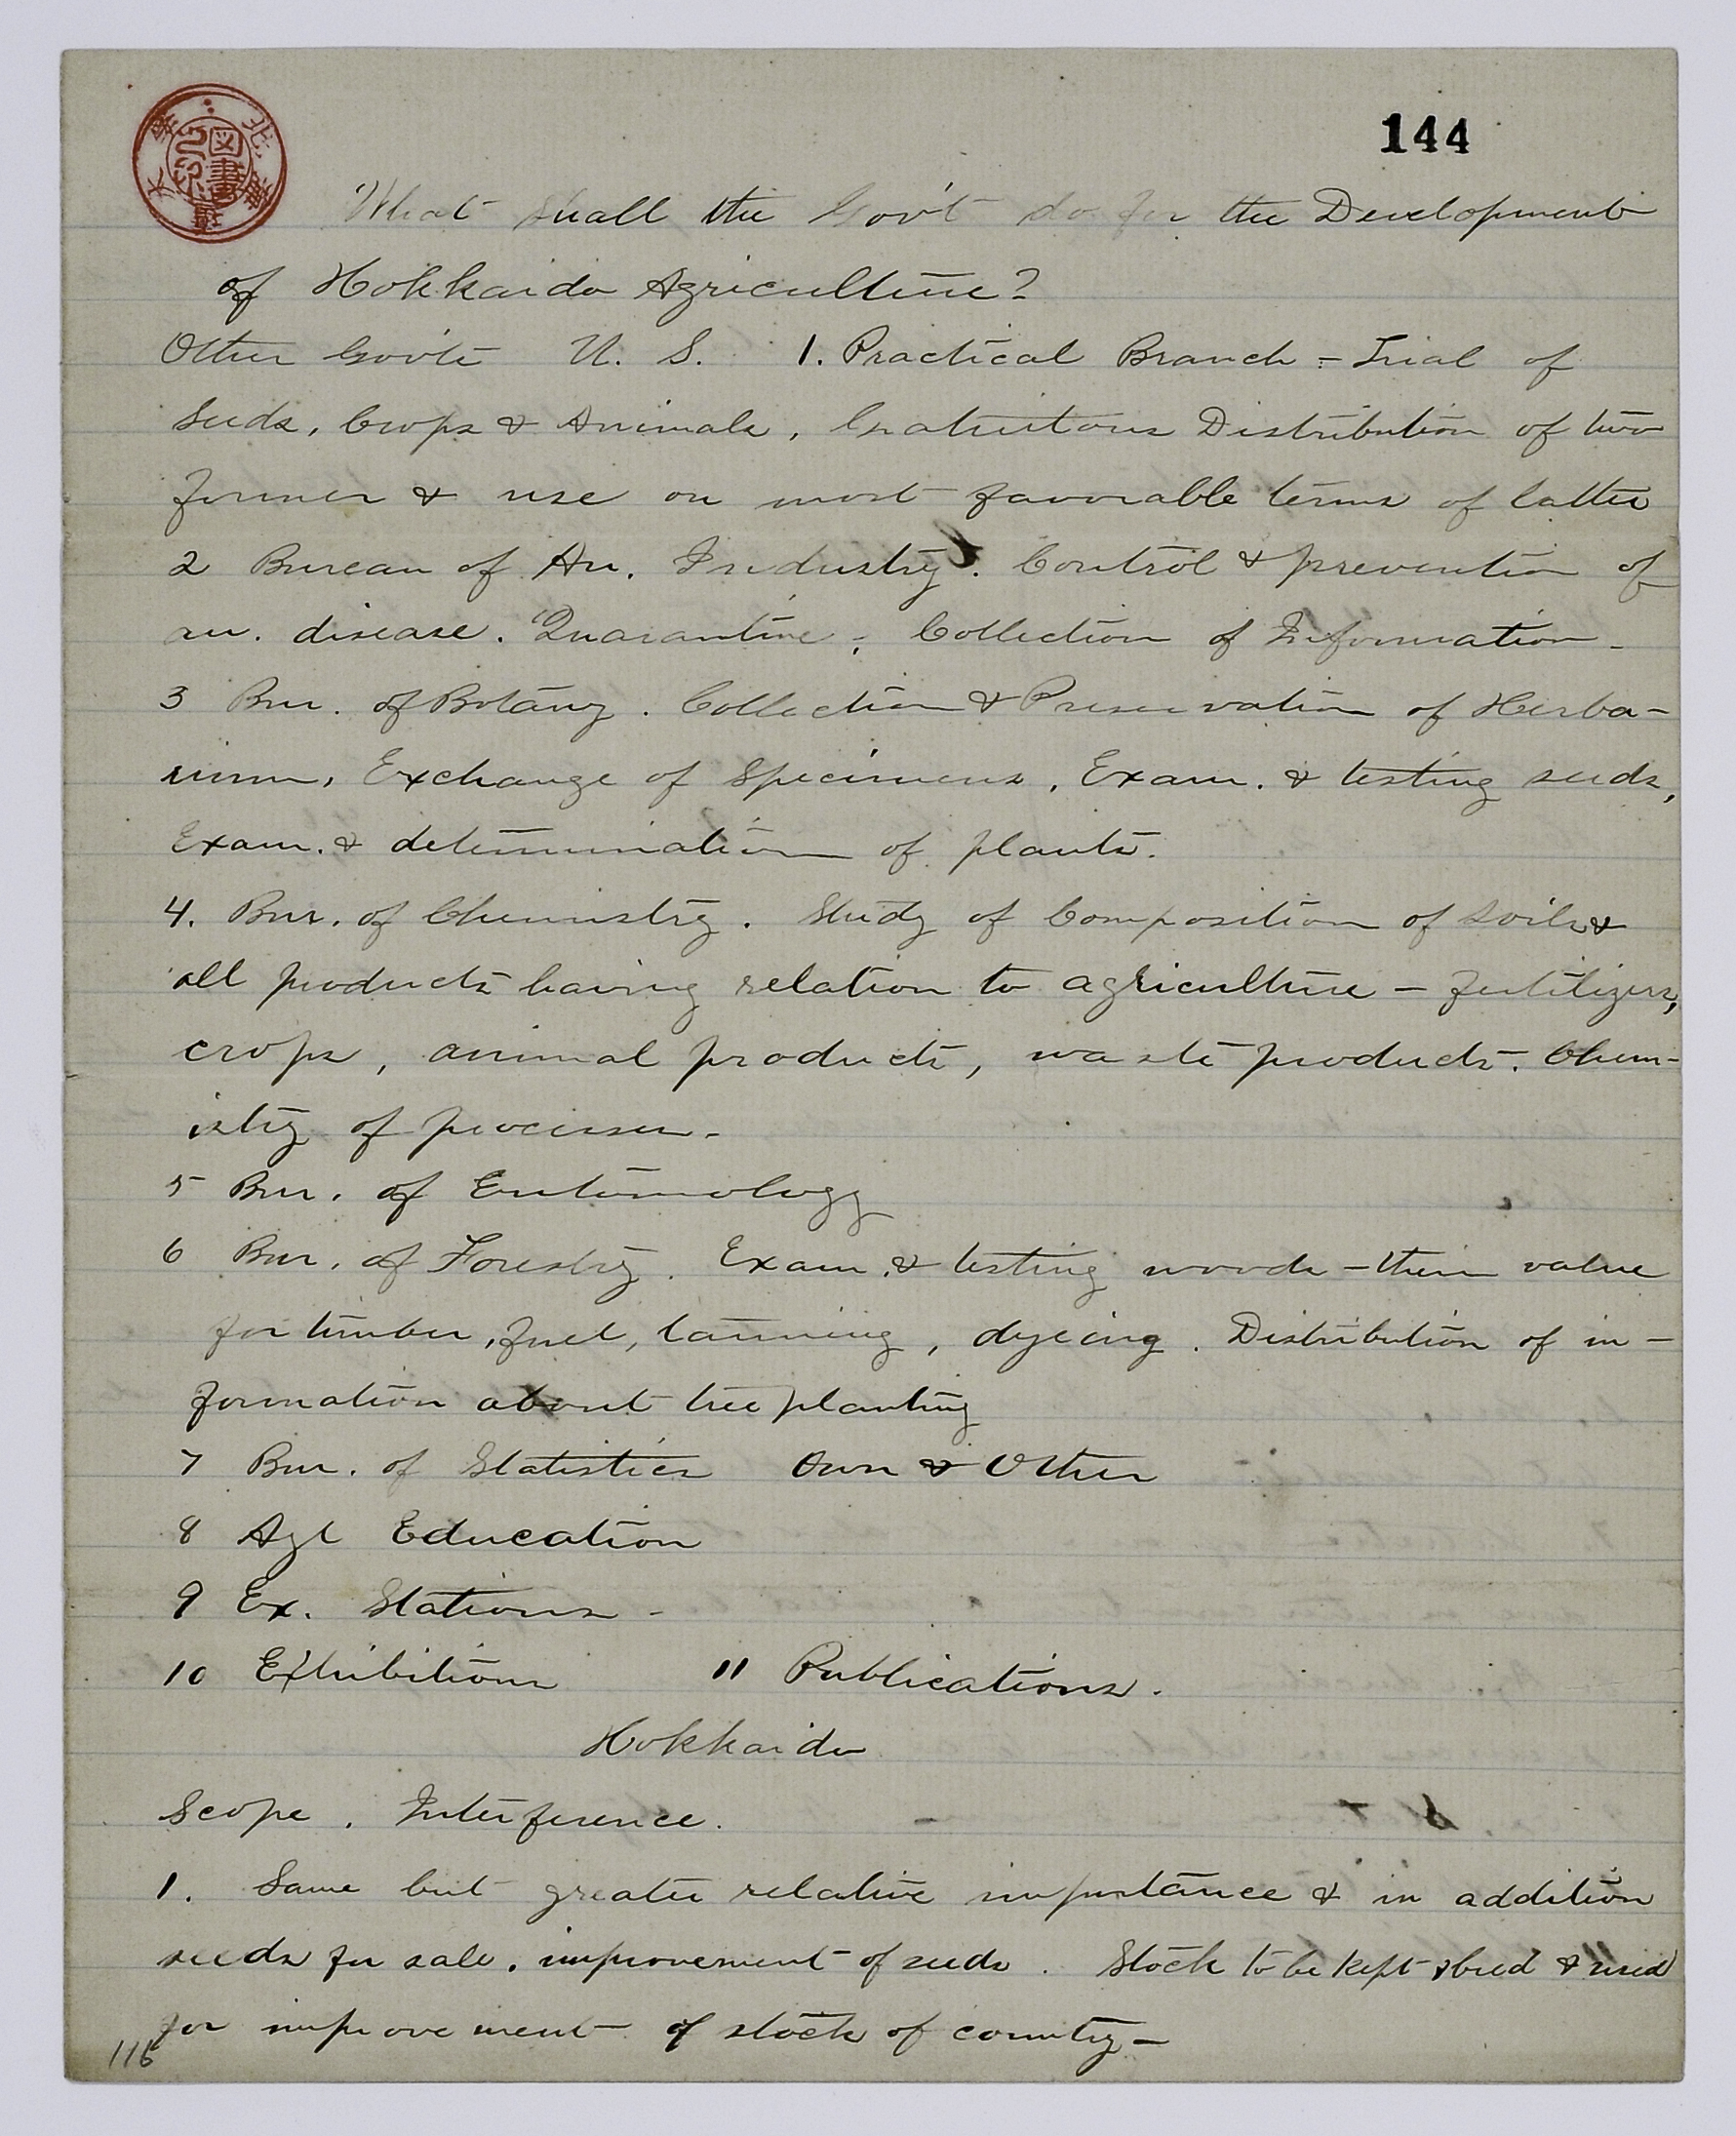 144
What shall the Gov't do for the Development
of Hokkaido Agriculture?
Other Gov'ts U. S. 1. Practical Branch - Trial of
Seeds, Crops & Animals, Gratuitous Distribution of two
former & use on most favorable terms of latter
2 Bureau of An. Industry. Control & prevention of
an. disease. Quarantine; Collection of Information -
3 Bur. of Botany. Collection & Preservation of Herba-
rium, Exchange of Specimens, Exam. & testing seeds,
Exam. & determination of plants.
4. Bur. of Chemistry. Study of Composition of Soils &
all products having relation to agriculture - fertilizers,
crops, animal products, waste products. Chem-
istry of processes -
5 Bur. of Entomology
6 Bur. of Forestry. Exam. & testing woods - their value
for timber, fuel, tanning, dyeing. Distribution of in-
formation about tree planting
7 Bur. of Statistics Own & Other
8 Agl Education
9 Ex. Stations -
10 Exhibitions 11 Publications.
Hokkaido
Scope. Interference.
1. Same but greater relative importance & in addition
seeds for sale. improvement of seeds. Stock to be kept & bred & used
for improvement of stock of country -
116